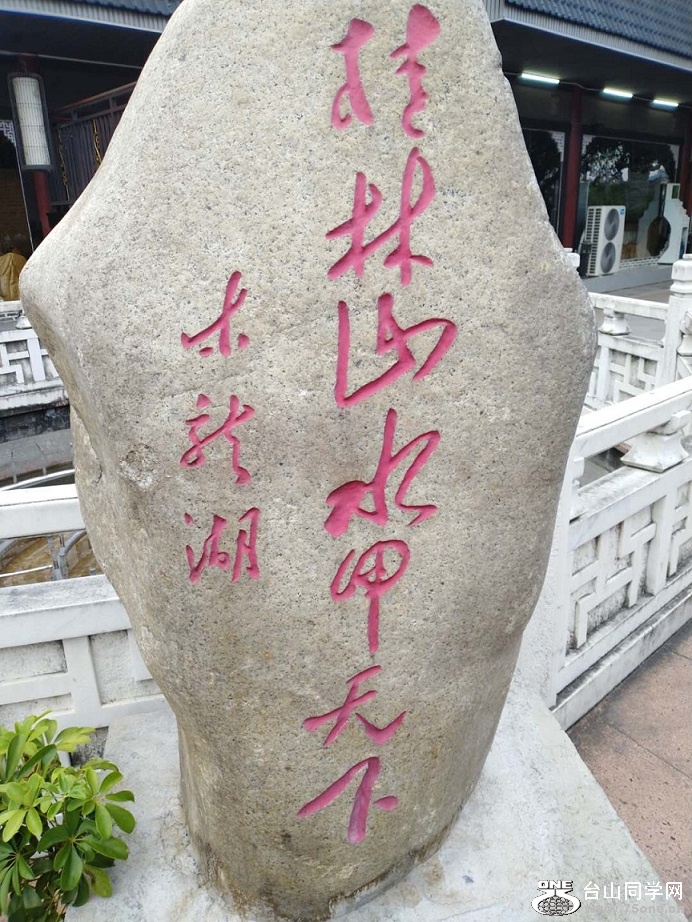 桂林山水甲天下
木龙湖
ONE
台山同学网